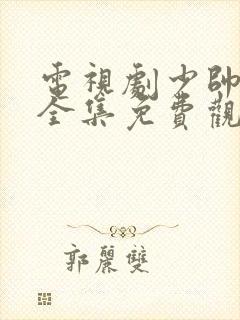 電視劇少帥
全集免費觀
郭麗雙